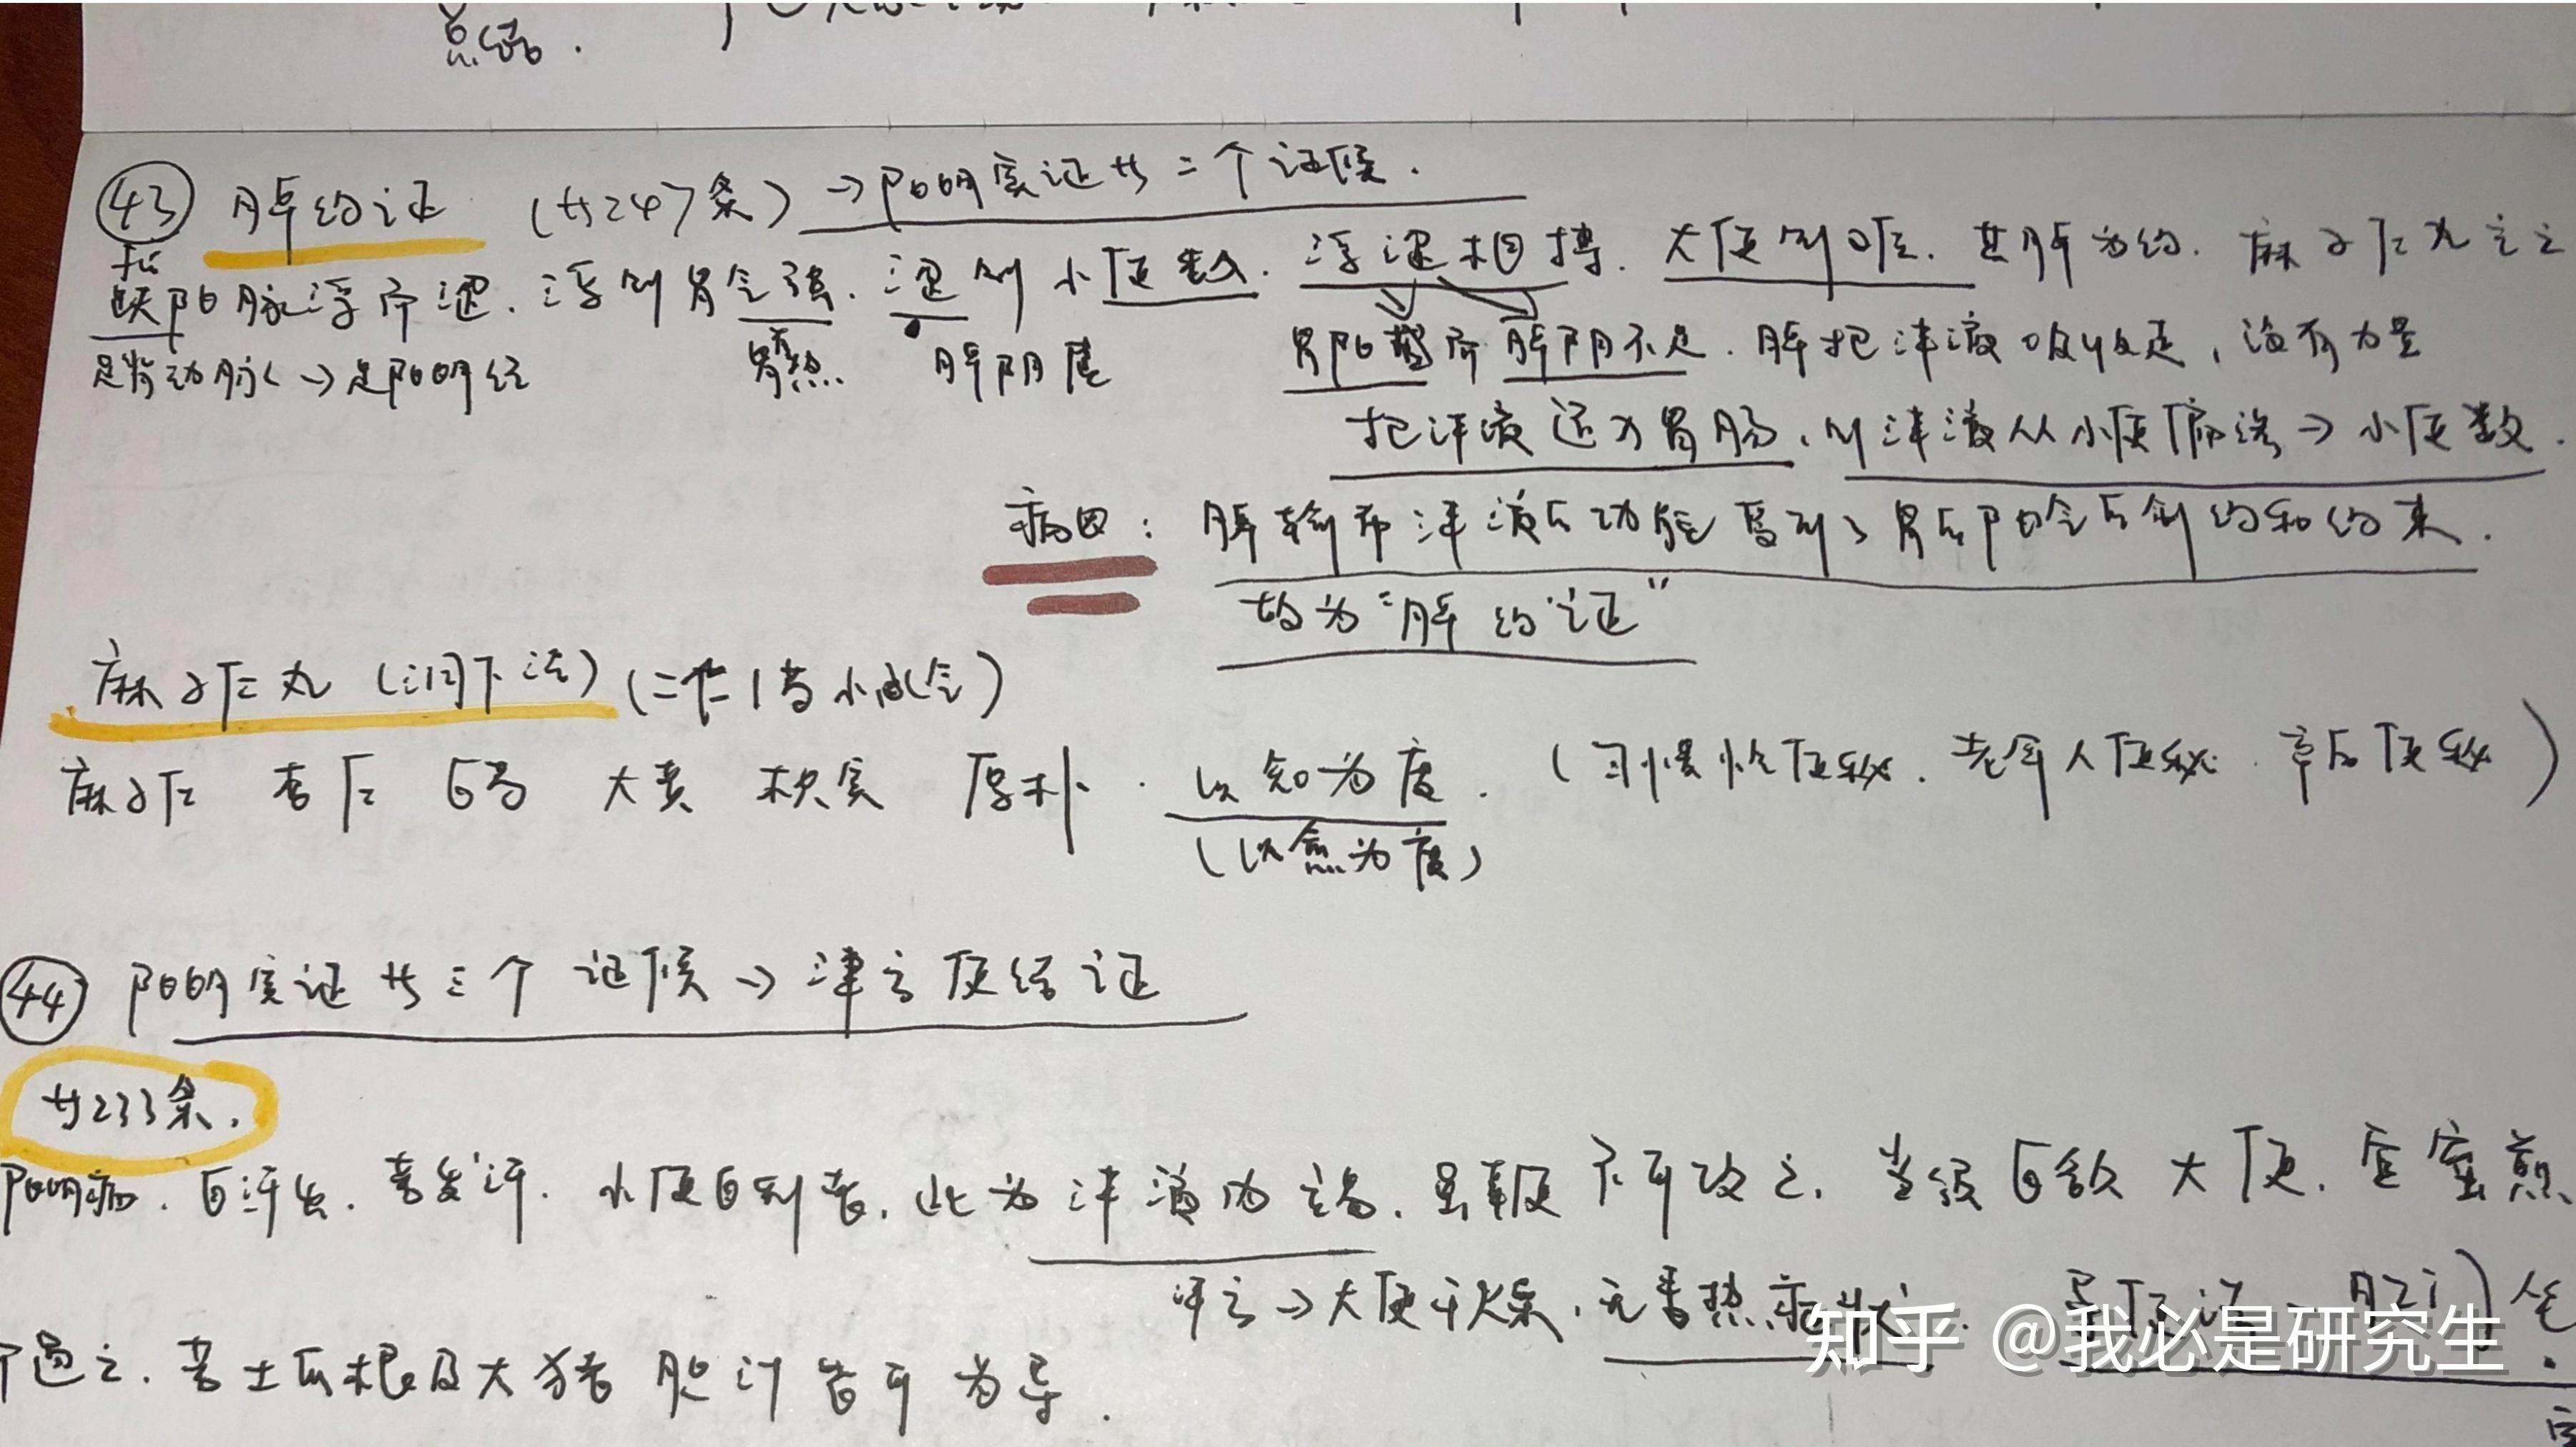 总结.
㊸ 脾约证 (共247条) →阳明实证共二个证候.
fu
趺阳脉浮而涩. 浮则胃气强. 涩则小便数. 浮涩相搏. 大便则硬. 其脾为约. 麻子仁丸主之
足背动脉→足阳明经 胃热 脾阴虚 胃阳盛而脾阴不足. 脾把津液吸收走, 没有力量
把津液还为胃肠, 则津液从小便偏渗→小便数.
病因: 脾输布津液的功能受到了胃的阳气的制约和约束.
故为“脾约证”
麻子仁丸 (润下法) (二仁1芍小承气)
麻子仁 杏仁 白芍 大黄 枳实 厚朴. 以知为度. (习惯性便秘. 老年人便秘. 产后便秘)
(以愈为度)
㊹ 阳明实证共三个证候→津亡便结证
共233条.
阳明病. 自汗出. 若发汗. 小便自利者. 此为津液内竭. 虽鞕不可攻之. 当须自欲大便. 宜蜜煎
津亡→大便干燥. 无潮热症状.
通之. 若土瓜根及大猪胆汁皆可为导.
知乎 @我必是研究生